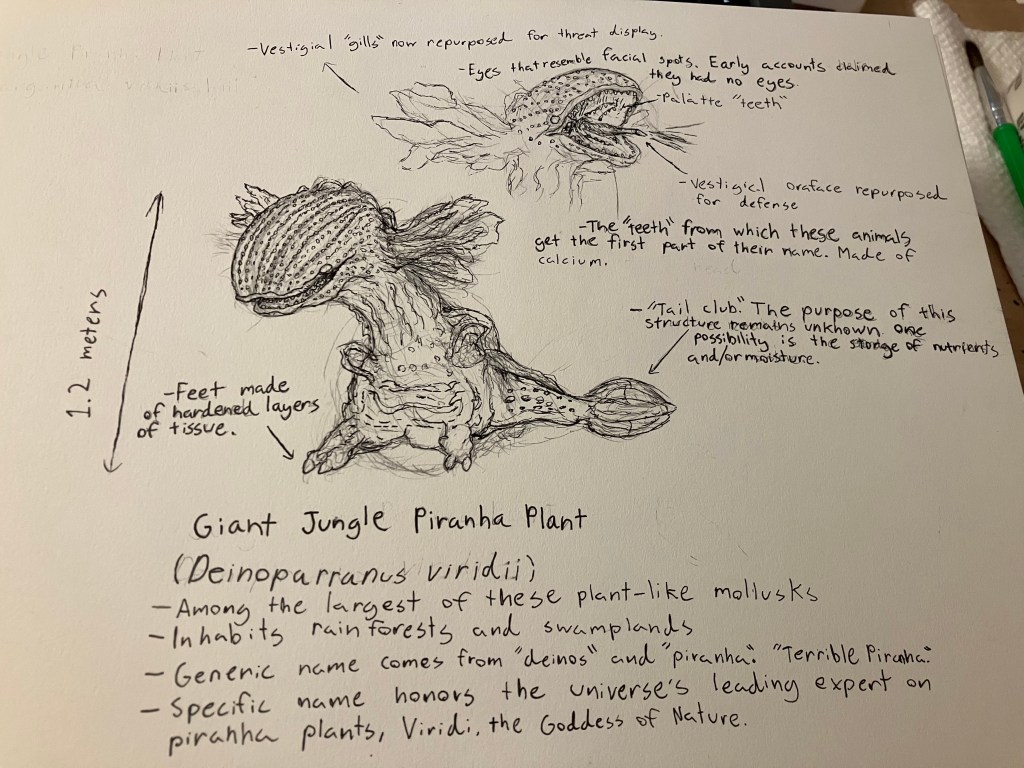 -Vestigial "gills" now repurposed for threat display.
-Eyes that resemble facial spots. Early accounts claimed
they had no eyes.
-Palatte "teeth"
-Vestigial oraface repurposed
for defense
-The "teeth" from which these animals
get the first part of their name. Made of
calcium.
head
-"Tail club." The purpose of this
structure remains unknown. One
possibility is the storage of nutrients
and/or moisture.
1.2 meters
-Feet made
of hardened layers
of tissue.
Giant Jungle Piranha Plant
(Deinoparranus viridii)
-Among the largest of these plant-like mollusks
-Inhabits rainforests and swamplands
-Generic name comes from "deinos" and "piranha." "Terrible Piranha."
-Specific name honors the universe's leading expert on
piranha plants, Viridi, the Goddess of Nature.